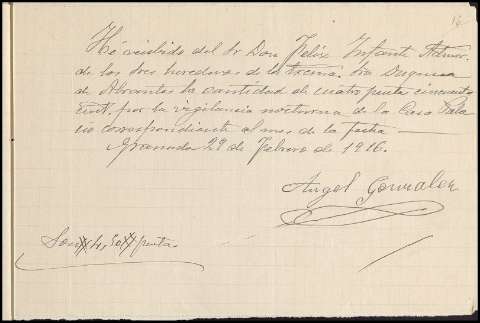 He recibido del Sr Don Felix Infante Admor.
de los tres herederos de la Excma. Sra Duquesa
de Abrantes la cantidad de cuatro ptas cincuenta
cent. por la vigilancia nocturna de la Casa Pala
cio correspondiente al mes de la fecha
Granada 29 de Febrero de 1916.
Angel Gonzalez
Son 4,50 ptas